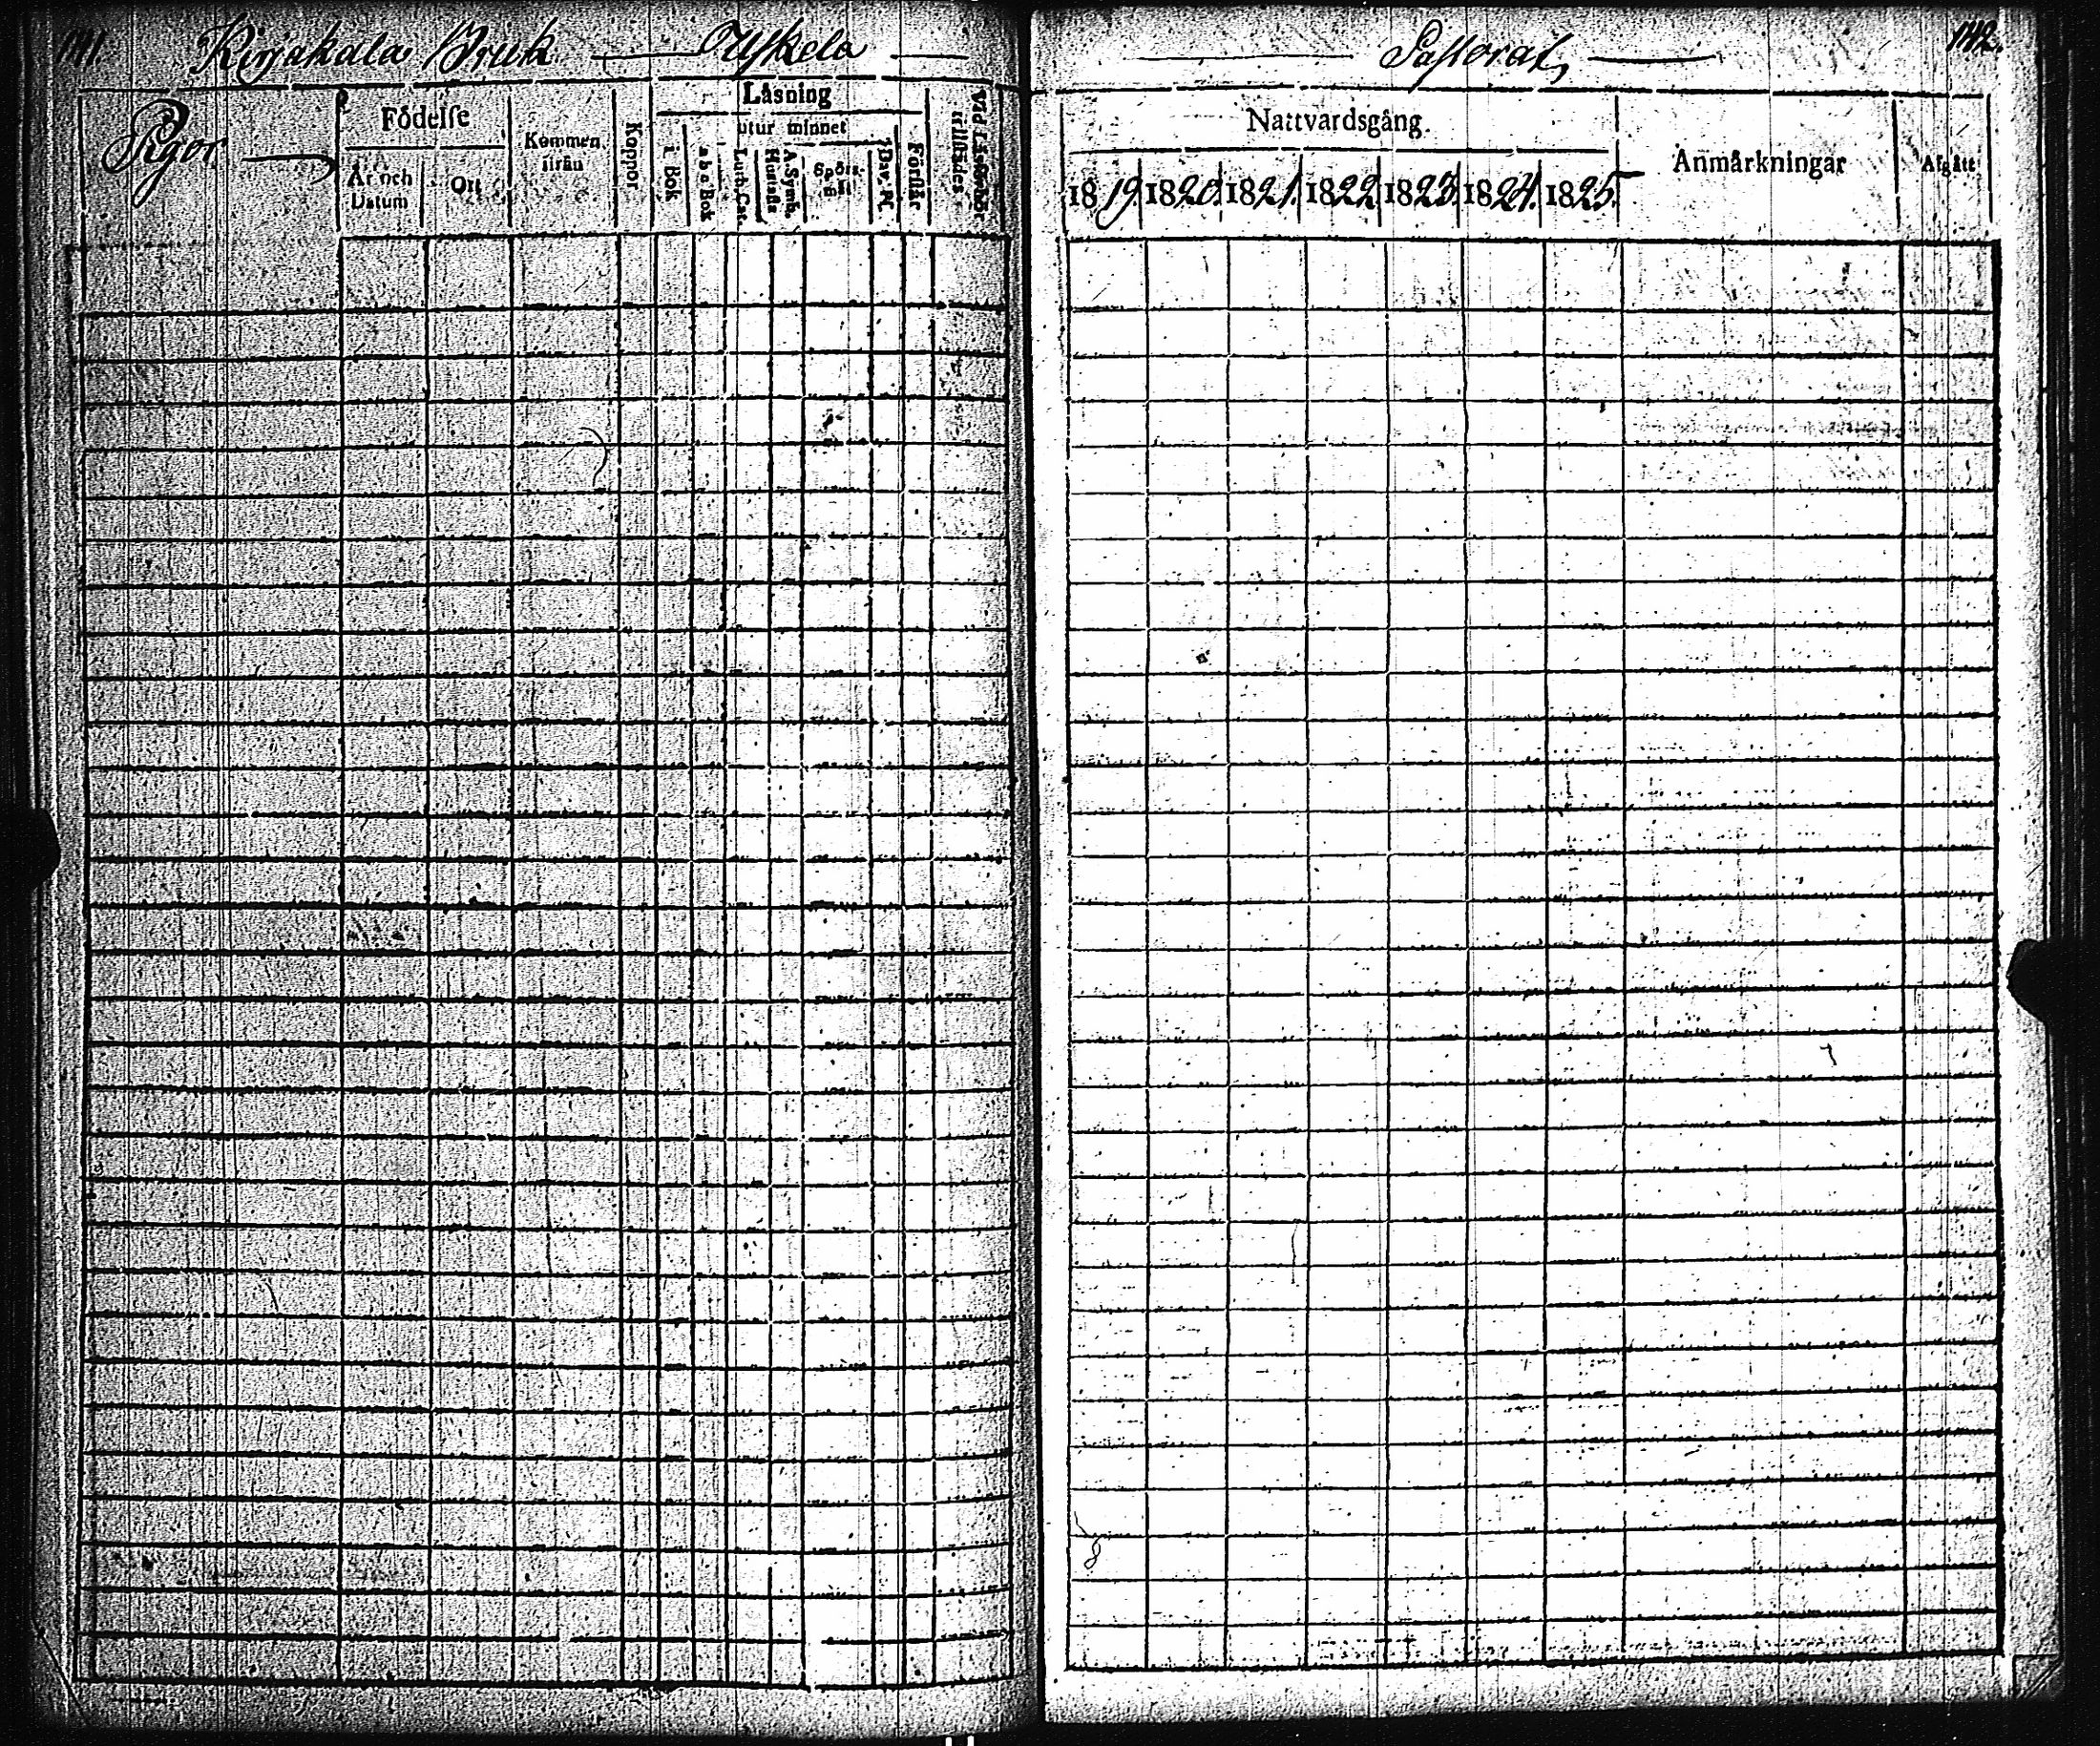 141. Kirjakala Bruk — Uskela —
Pigor
Födelse
År och Datum
Ort
Kommen ifrån
Koppor
Läsning
i Bok
utur minnet
a b c Bok
Luth. Cat.
Hustafla
A. Symb.
Spörs-mål
Dav. Ps.
Förstår
Vid Läseförhör tillstädes
— Pastorat — 142.
Nattvardsgång.
1819. 1820. 1821. 1822. 1823. 1824. 1825.
Anmärkningar
Afgått